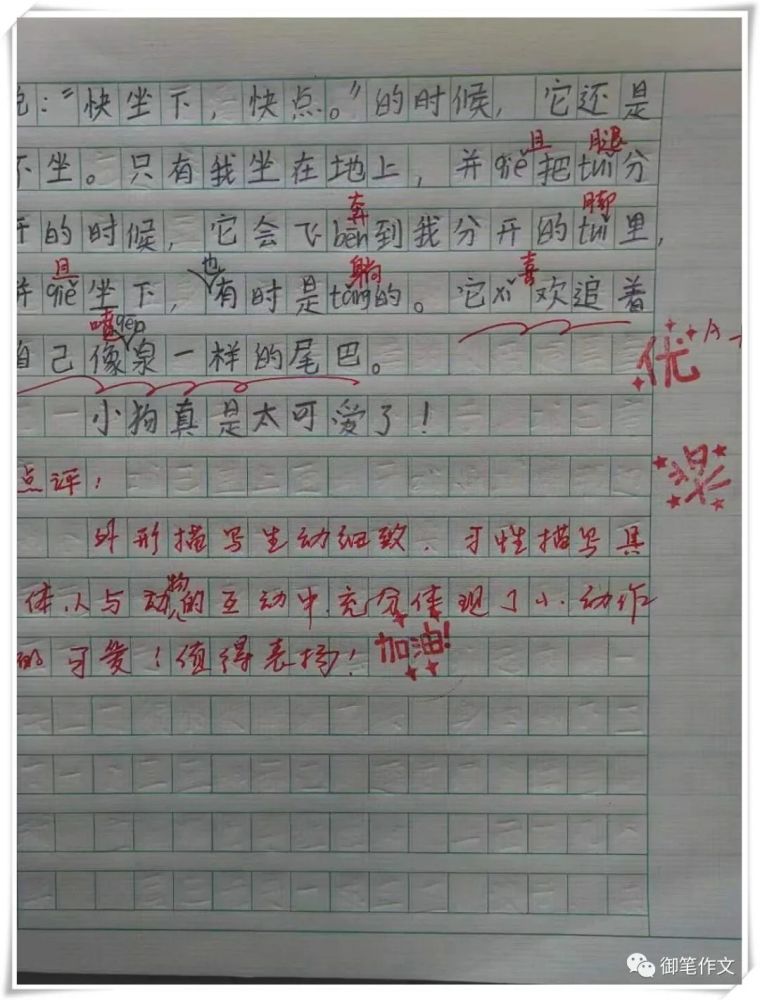 ：“快坐下，快点。”的时候，它还是
不坐。只有我坐在地上，并qiě把tuǐ分
且 腿
开的时候，它会飞bēn到我分开的tuǐ里，
奔 脚
并qiě坐下，也有时是tǎng的。它xǐ欢追着
且 躺 喜
自己像泉一样的尾巴。
喷 pēn
小狗真是太可爱了！
点评：
外形描写生动细致，习性描写具
体，人与动物的互动中，充分体现了小动作
的可爱！值得表扬！
加油！
优
A+
御笔作文